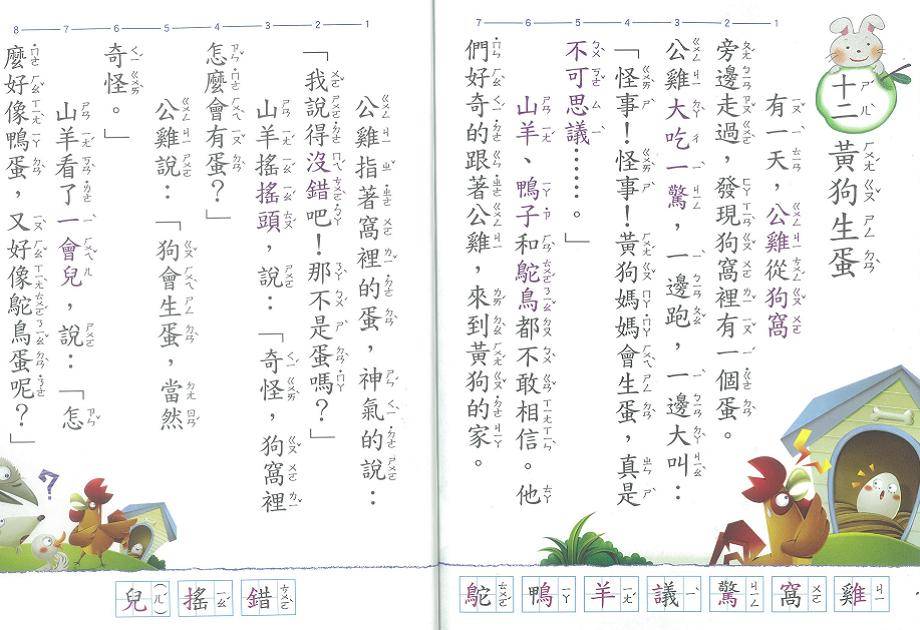 十二 黃狗生蛋
1 有一天，公雞從狗窩
2 旁邊走過，發現狗窩裡有一個蛋。
3 公雞大吃一驚，一邊跑，一邊大叫：
4 「怪事！怪事！黃狗媽媽會生蛋，真是
5 不可思議………。」
6 山羊、鴨子和鴕鳥都不敢相信。他
7 們好奇的跟著公雞，來到黃狗的家。
雞ㄐㄧ 窩ㄨㄛ 驚ㄐㄧㄥ 議ㄧˋ 羊ㄧㄤˊ 鴨ㄧㄚ 鴕ㄊㄨㄛˊ
1 公雞指著窩裡的蛋，神氣的說：
2 「我說得沒錯吧！那不是蛋嗎？」
3 山羊搖搖頭，說：「奇怪，狗窩裡
4 怎麼會有蛋？」
5 公雞說：「狗會生蛋，當然
6 奇怪。」
7 山羊看了一會兒，說：「怎
8 麼好像鴨蛋，又好像鴕鳥蛋呢？」
?
錯ㄘㄨㄛˋ 搖ㄧㄠˊ 兒(ㄦˊ)